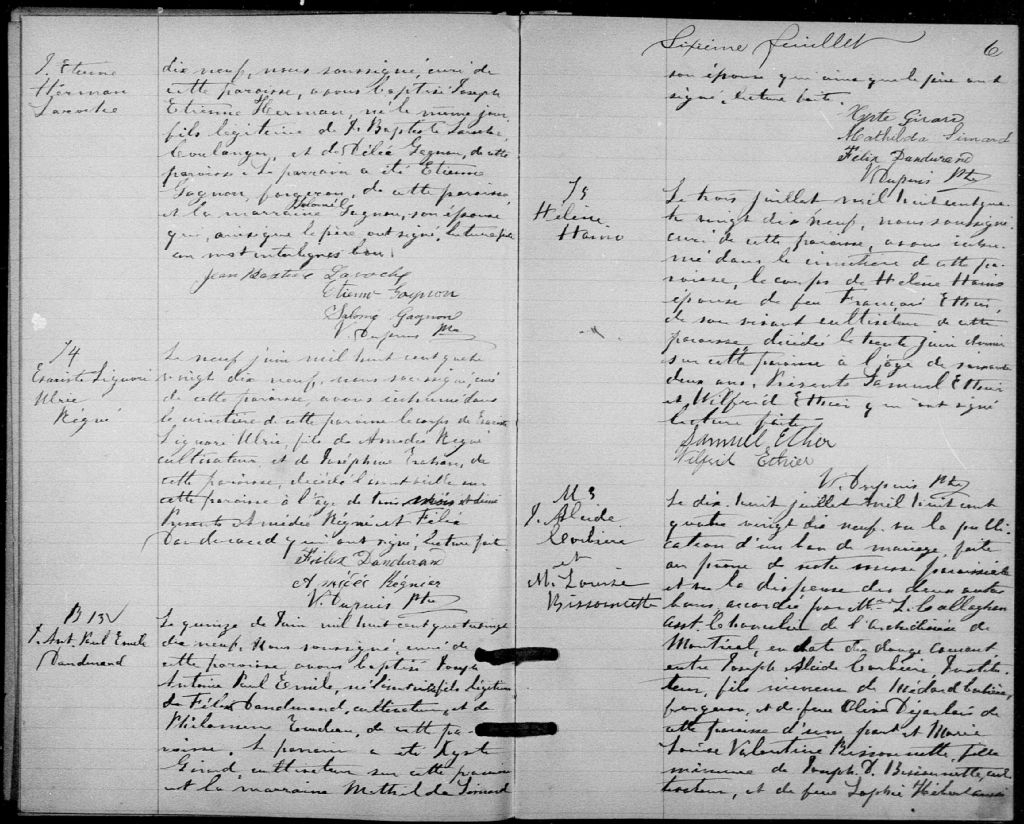 J. Etienne
Herman
Laroche
dix neuf, nous soussigné, curé de
cette paroisse, avons baptisé Joseph
Etienne Herman, né le même jour,
fils légitime de J. Baptiste Laroche,
boulanger, et de Délia Gagnon, de cette
paroisse. Le parrain a été Etienne
Gagnon, forgeron, de cette paroisse,
et la marraine Salomé Gagnon, son épouse
qui, ainsi que le père ont signé. Lecture faite
un mot interlignes bon.
Jean Baptiste Laroche
Etienne Gagnon
Salomé Gagnon
V. Dupuis Ptre
J4
Evariste Liguori
Ulric
Régné
Le neuf juin mil huit cent quatre
vingt dix neuf, nous soussigné, curé
de cette paroisse, avons inhumé dans
le cimetière de cette paroisse le corps de Evariste
Liguori Ulric, fils de Amédée Régné
cultivateur, et de Joséphine, de
cette paroisse, décédé l'avant veille sur
cette paroisse à l'âge de mois et demi
Présents Amédée Régné et Félix
Dandurand qui ont signé. Lecture faite.
Félix Dandurand
Amédée Régnier
V. Dupuis Ptre
B 13
J. Ant. Paul Emile
Dandurand
Le quinze de Juin mil huit cent quatrevingt
dix neuf, Nous soussigné, curé de
cette paroisse avons baptisé Joseph
Antoine Paul Emile, né fils légitime
de Félix Dandurand, cultivateur, et de
Philomène, de cette pa-
roisse. Le parrain a été Xyste
Girard, cultivateur sur cette paroisse
et la marraine Mathilda Simard
Sixième feuillet
6
son épouse qui ainsi que le père ont
signé. Lecture faite.
Xyste Girard
Mathilda Simard
Felix Dandurand
V. Dupuis Ptre
J5
Hélène
Haino
Le trois juillet mil huit cent qua-
tre vingt dix neuf, nous soussigné
curé de cette paroisse, avons inhu-
mé dans le cimetière de cette pa-
roisse, le corps de Hélène Haino
épouse de feu François Ethier,
de son vivant cultivateur de cette
paroisse, décédée le trente juin dernier
sur cette paroisse à l'âge de soixante
deux ans. Présents Samuel Ethier
et Wilfrid Ethier qui ont signé
lecture faite
Samuel Ethier
Wilfrid Ethier
V. Dupuis Ptre
M 3
J. Alcide
Corbière
et
M. Louise
Bissonnette
Le dix huit juillet mil huit cent
quatre vingt dix neuf vu la publi-
cation d'un ban de mariage, faite
au prône de notre messe paroissiale
et vu la dispense des deux autres
bans, accordée par Mr L. Callaghan
asst. Chancelier de l'archidiocèse de
Montréal, en date du douze courant
entre Joseph Alcide Corbière Institu-
teur, fils mineur de Médard Corbière,
forgeron, et de feue Olive Déjarlais de
cette paroisse d'une part et Marie
Louise Valentine Bissonnette, fille
mineure de Joseph D. Bissonnette, cul-
tivateur, et de feue Sophie